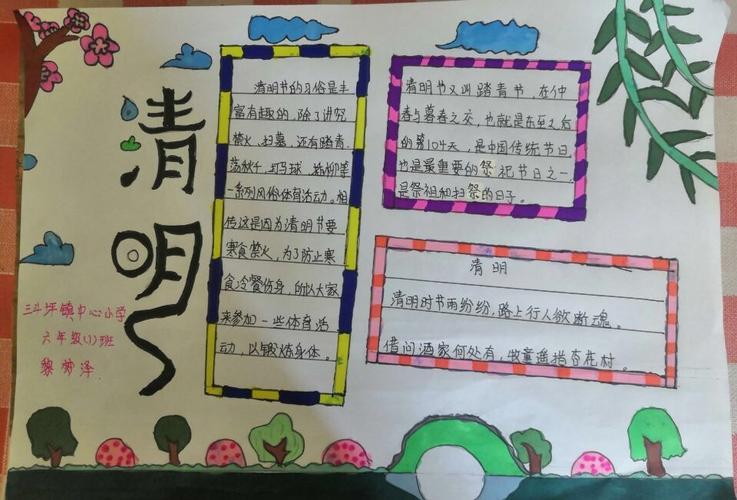 清明
三斗坪镇中心小学
六年级(1)班
黎梦泽
清明节的习俗是丰
富有趣的,除了讲究
禁火、扫墓,还有踏青、
荡秋千、打马球、插柳等
一系列风俗体育活动。相
传这是因为清明节要
寒食禁火,为了防止寒
食冷餐伤身,所以大家
来参加一些体育活
动,以锻炼身体。
清明节又叫踏青节,在仲
春与暮春之交,也就是冬至之后
的第104天,是中国传统节日,
也是最重要的祭祀节日之一,
是祭祖和扫祭的日子。
清明
清明时节雨纷纷,路上行人欲断魂。
借问酒家何处有,牧童遥指杏花村。